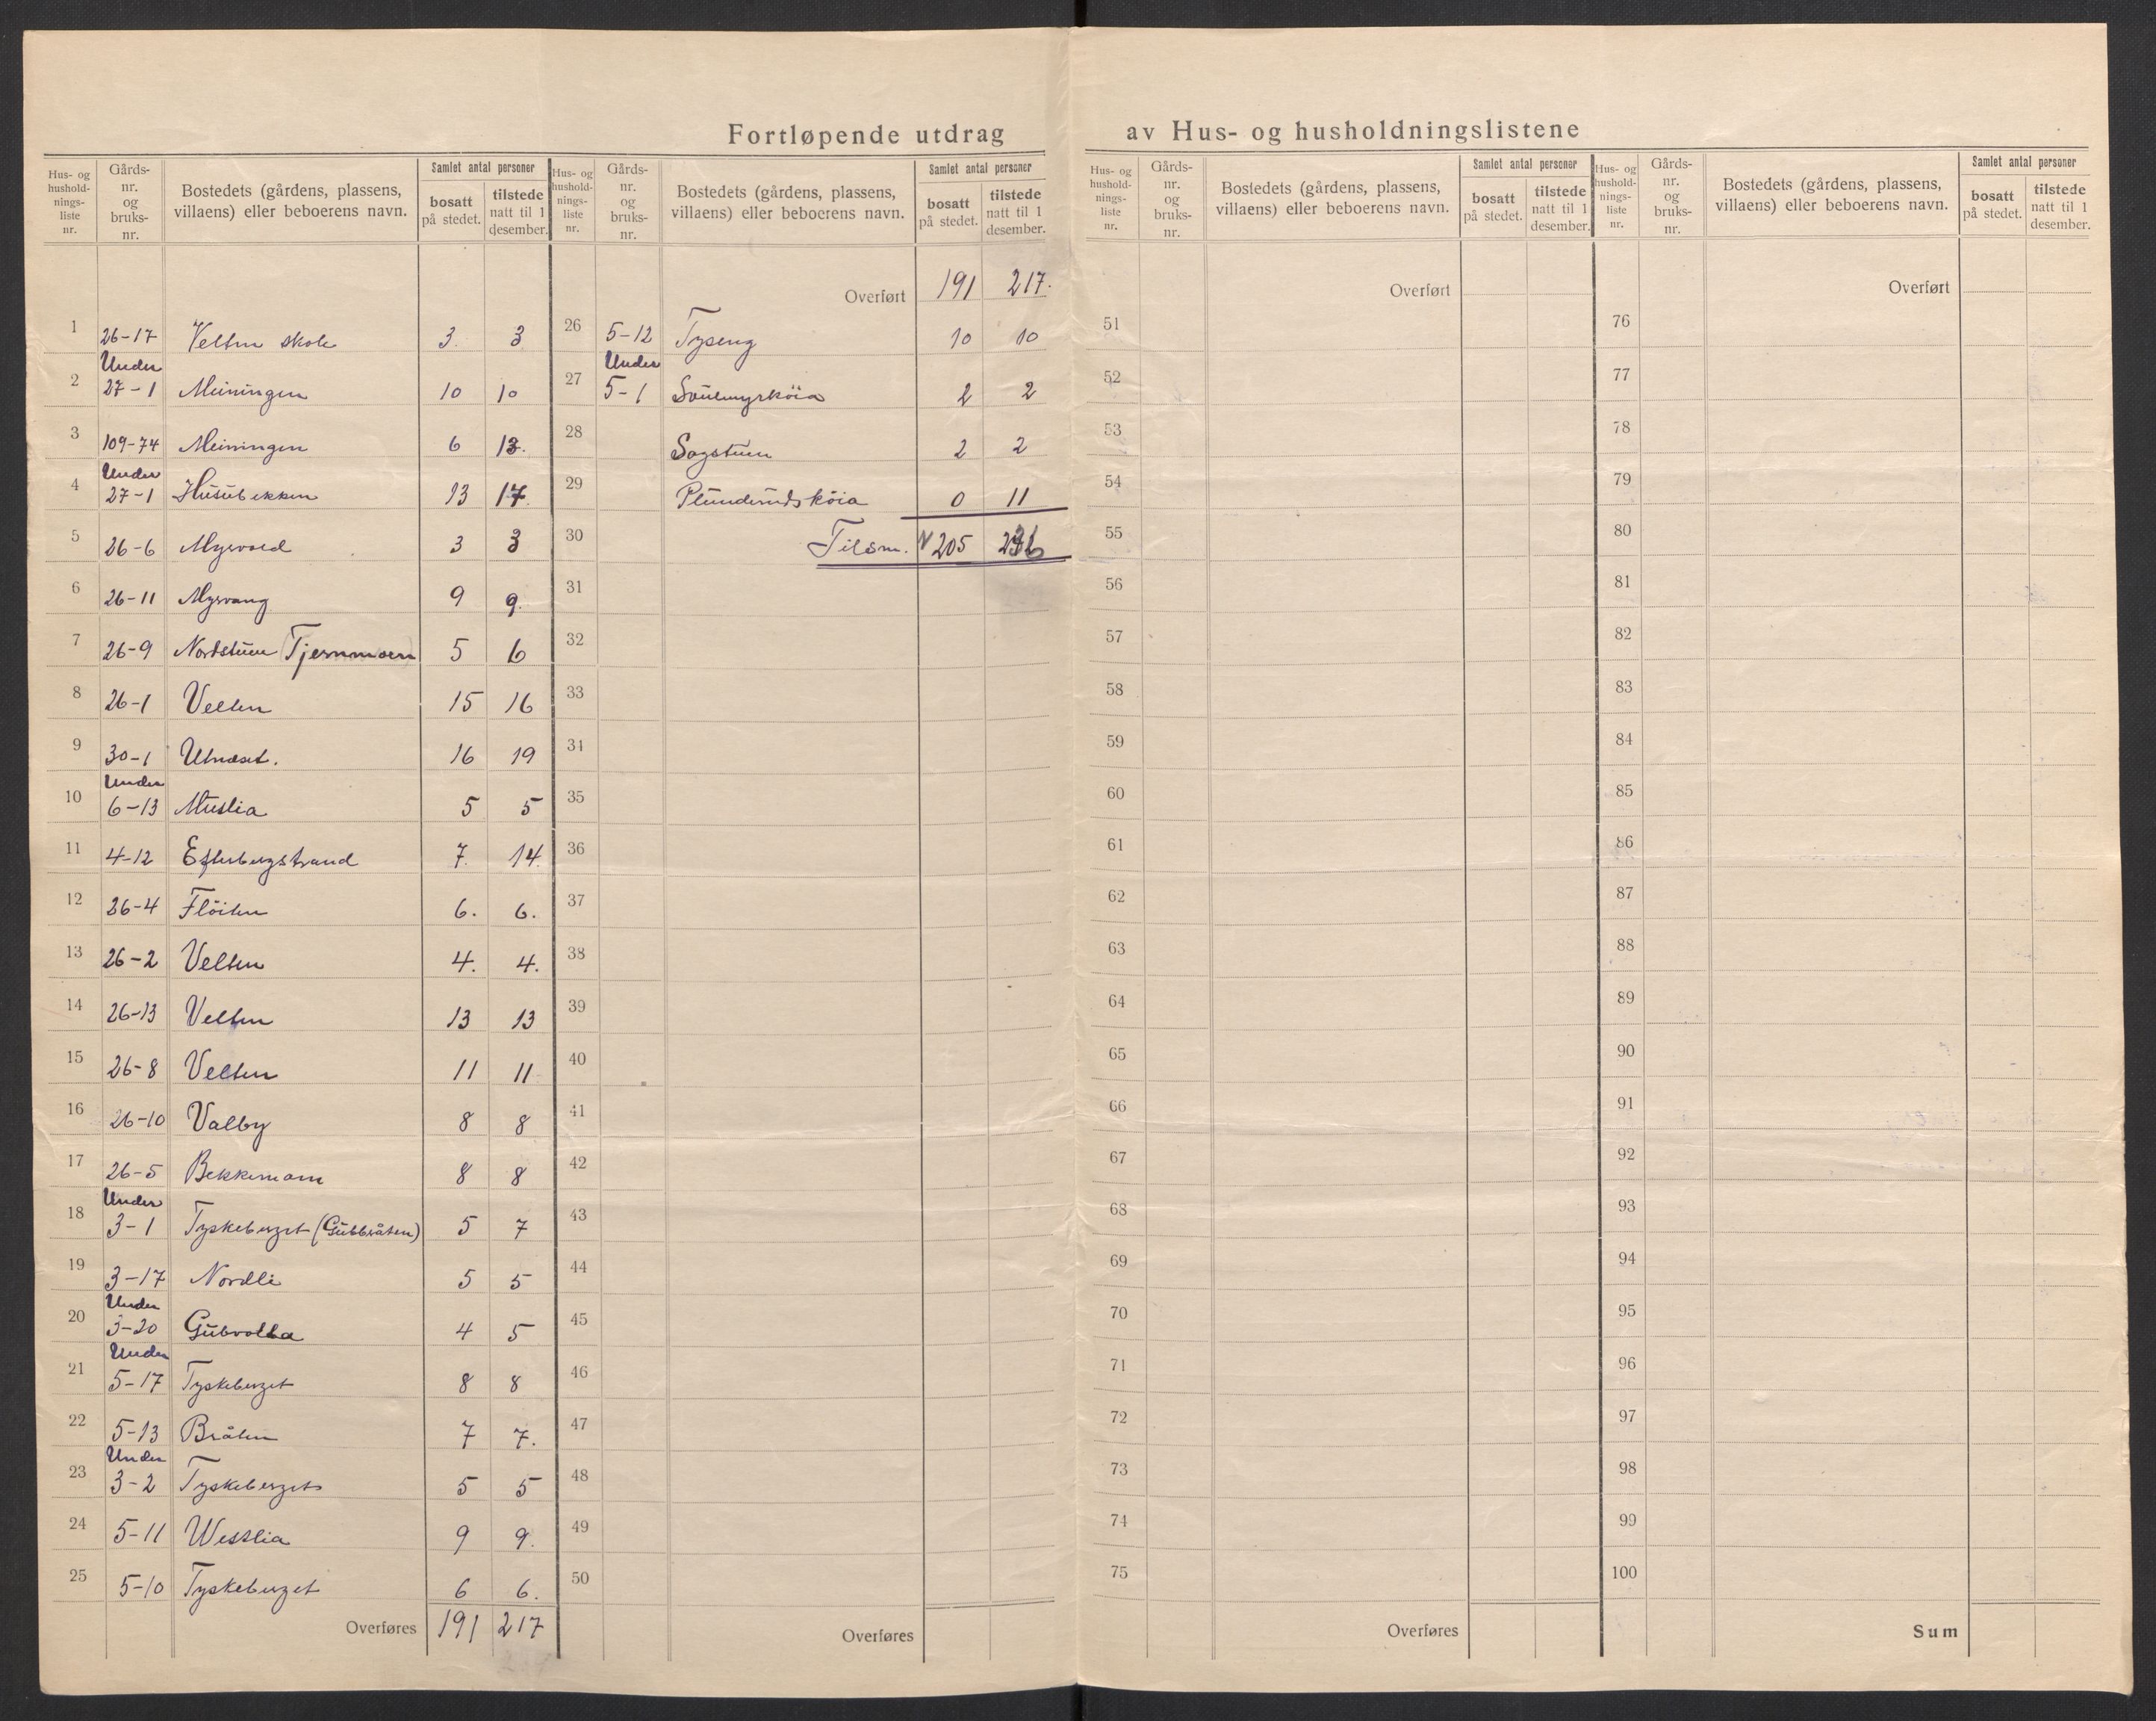 Fortløpende utdrag av Hus- og husholdningslistene
Hus- og hushold- nings- liste nr. | Gårds- nr. og bruks- nr. | Bostedets (gårdens, plassens, villaens) eller beboerens navn. | Samlet antal personer: bosatt på stedet. | tilstede natt til 1 desember.
1 26-17 Velten skole 3. 3
2 Under 27-1 Meiningen 10 10
3 109-74 Meiningen 6 13.
4 Under 27-1 Husubekken 13 17.
5 26-6 Myrvold 3 3
6 26-11 Myrvang 9 9.
7 26-9 Nordstuen (Tjernmoen) 5 6
8 26-1 Velten 15 16
9 30-1 Utnæset. 16 19
10 Under 6-13 Muslia 5 5
11 4-12 Efterbergstrand 7. 14.
12 26-4 Flöiten 6. 6.
13 26-2 Velten 4. 4.
14 26-13 Velten 13 13
15 26-8 Velten 11 11
16 26-10 Valby 8 8
17 26-5 Bekkemoen 8 8
18 Under 3-1 Tyskeberget (Gubbråten) 5 7
19 3-17 Nordli 5 5
20 Under 3-20 Gubvolla 4 5
21 Under 5-17 Tyskeberget 8 8
22 5-13 Bråten 7 7.
23 Under 3-2 Tyskeberget 5 5
24 5-11 Westlia 9 9.
25 5-10 Tyskeberget 6 6.
Overføres 191 217
Hus- og hushold- nings- liste nr. | Gårds- nr. og bruks- nr. | Bostedets (gårdens, plassens, villaens) eller beboerens navn. | Samlet antal personer: bosatt på stedet. | tilstede natt til 1 desember.
Overført 191 217.
26 5-12 Tyseng 10 10
27 Under 5-1 2 2
28 Sagstuen 2 2
29 0 11
30 Tilsm. 205
31
32
33
34
35
36
37
38
39
40
41
42
43
44
45
46
47
48
49
50
Overføres
Hus- og hushold- nings- liste nr. | Gårds- nr. og bruks- nr. | Bostedets (gårdens, plassens, villaens) eller beboerens navn. | Samlet antal personer: bosatt på stedet. | tilstede natt til 1 desember.
Overført
51
52
53
54
55
56
57
58
59
60
61
62
63
64
65
66
67
68
69
70
71
72
73
74
75
Overføres
Hus- og hushold- nings- liste nr. | Gårds- nr. og bruks- nr. | Bostedets (gårdens, plassens, villaens) eller beboerens navn. | Samlet antal personer: bosatt på stedet. | tilstede natt til 1 desember.
Overført
76
77
78
79
80
81
82
83
84
85
86
87
88
89
90
91
92
93
94
95
96
97
98
99
100
Sum